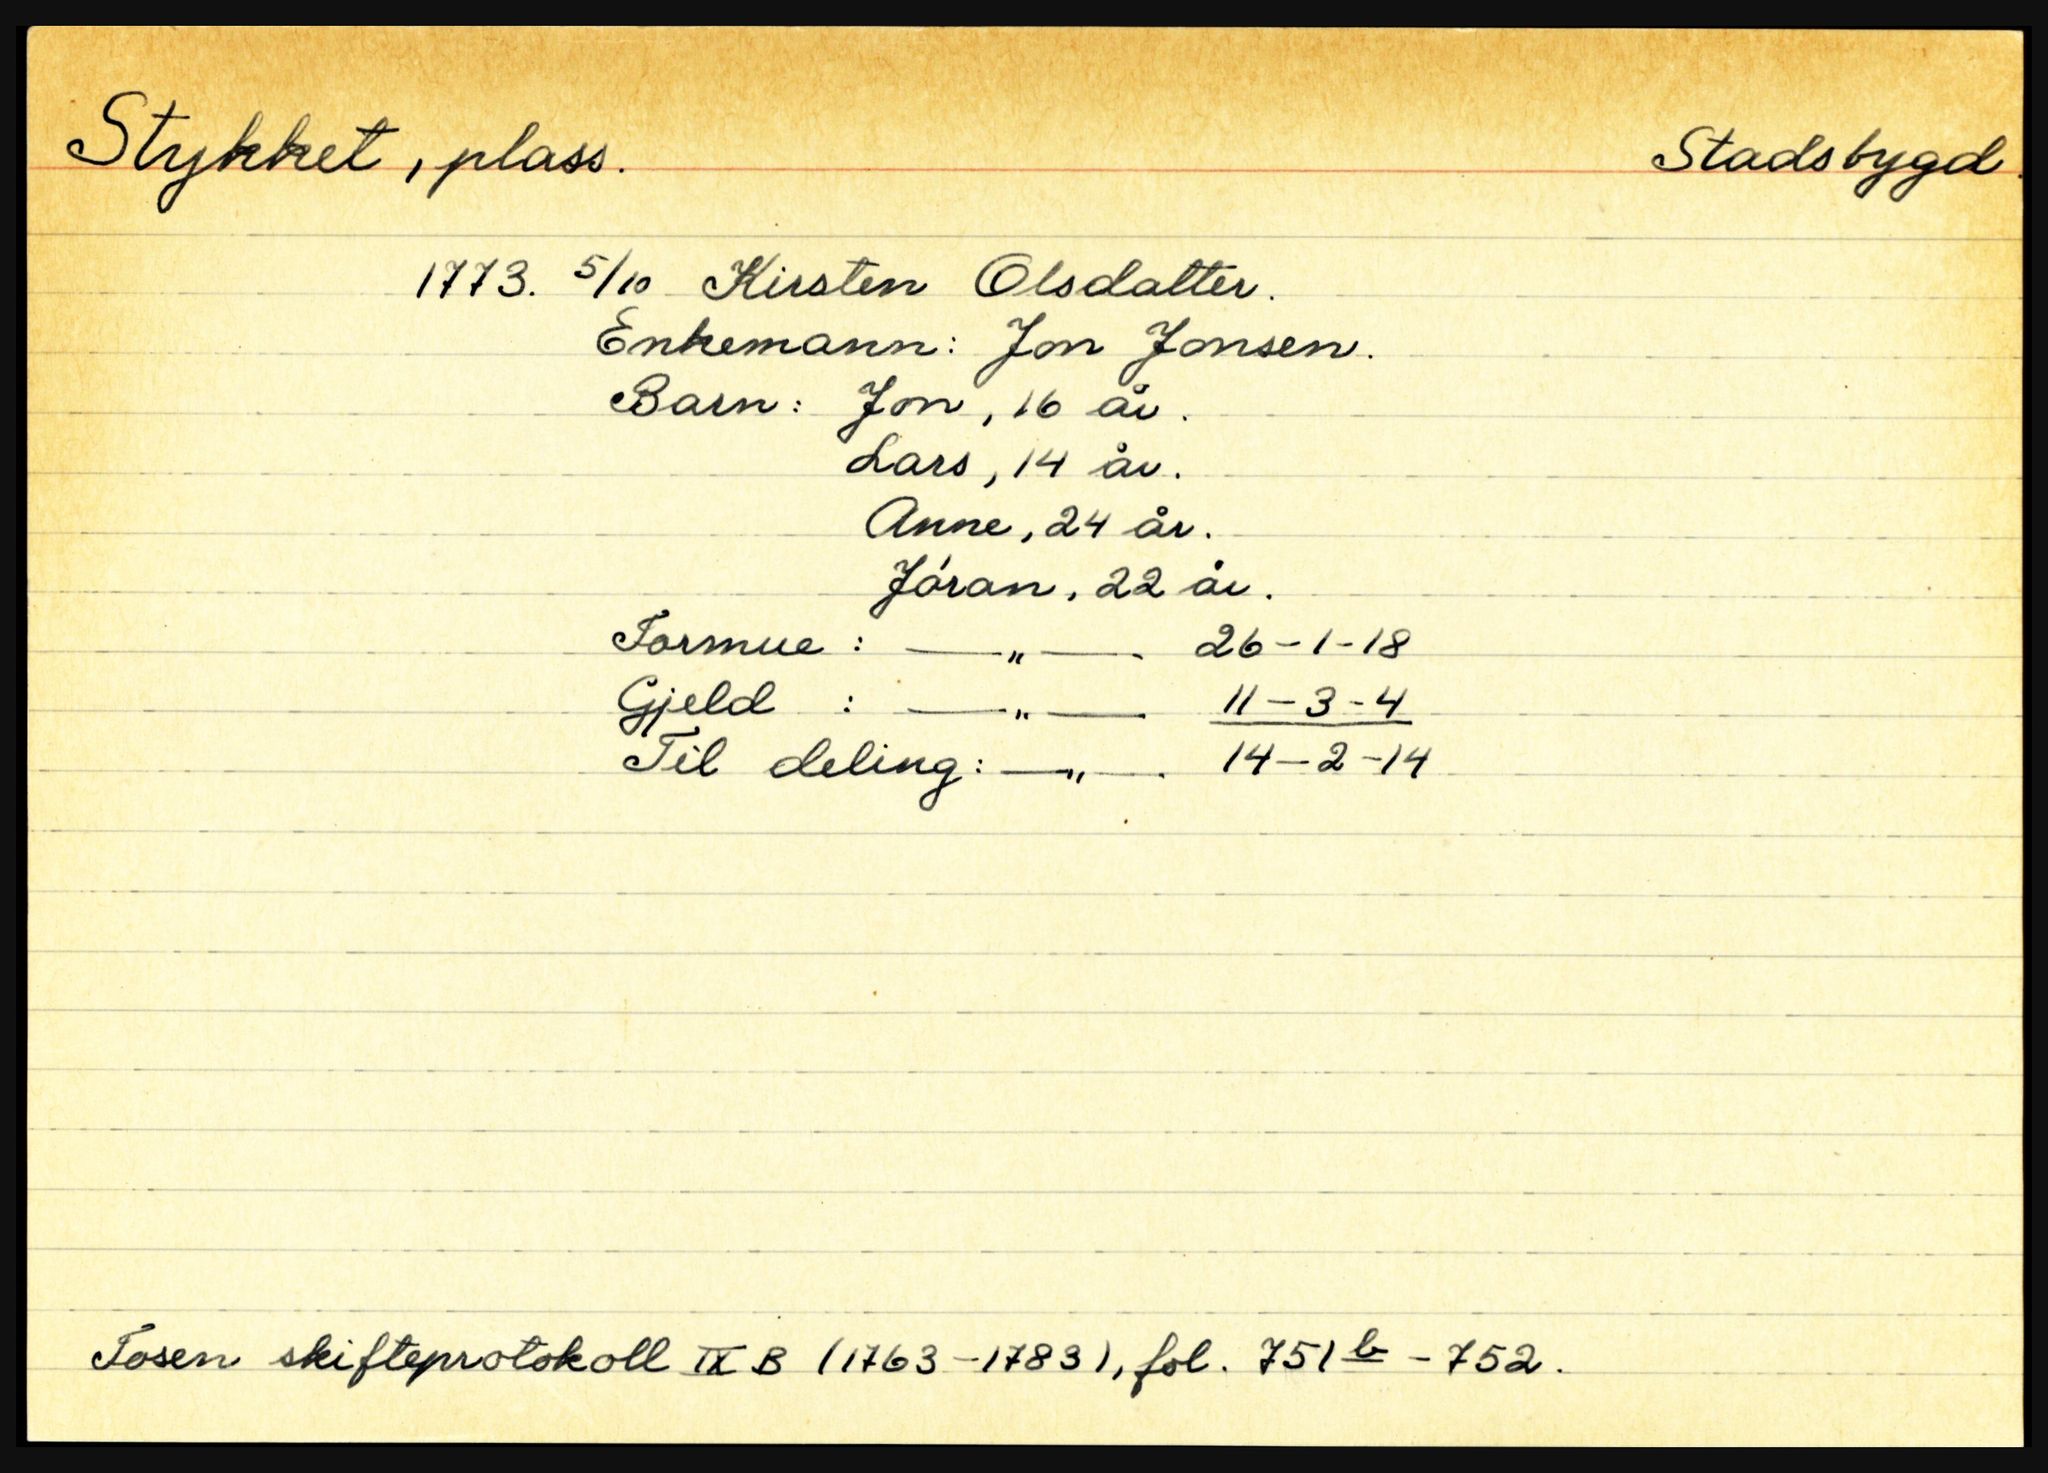 Stykket, plass. Stadsbygd.
1773. 5/10 Kirsten Olsdatter.
Enkemann: Jon Jonsen.
Barn: Jon, 16 år.
Lars, 14 år.
Anne, 24 år.
Jóran, 22 år.
Formue: —„— 26-1-18
Gjeld : —„— 11-3-4
Til deling: —„— 14-2-14
Fosen skifteprotokoll IX B (1763-1783), fol. 751 b - 752.